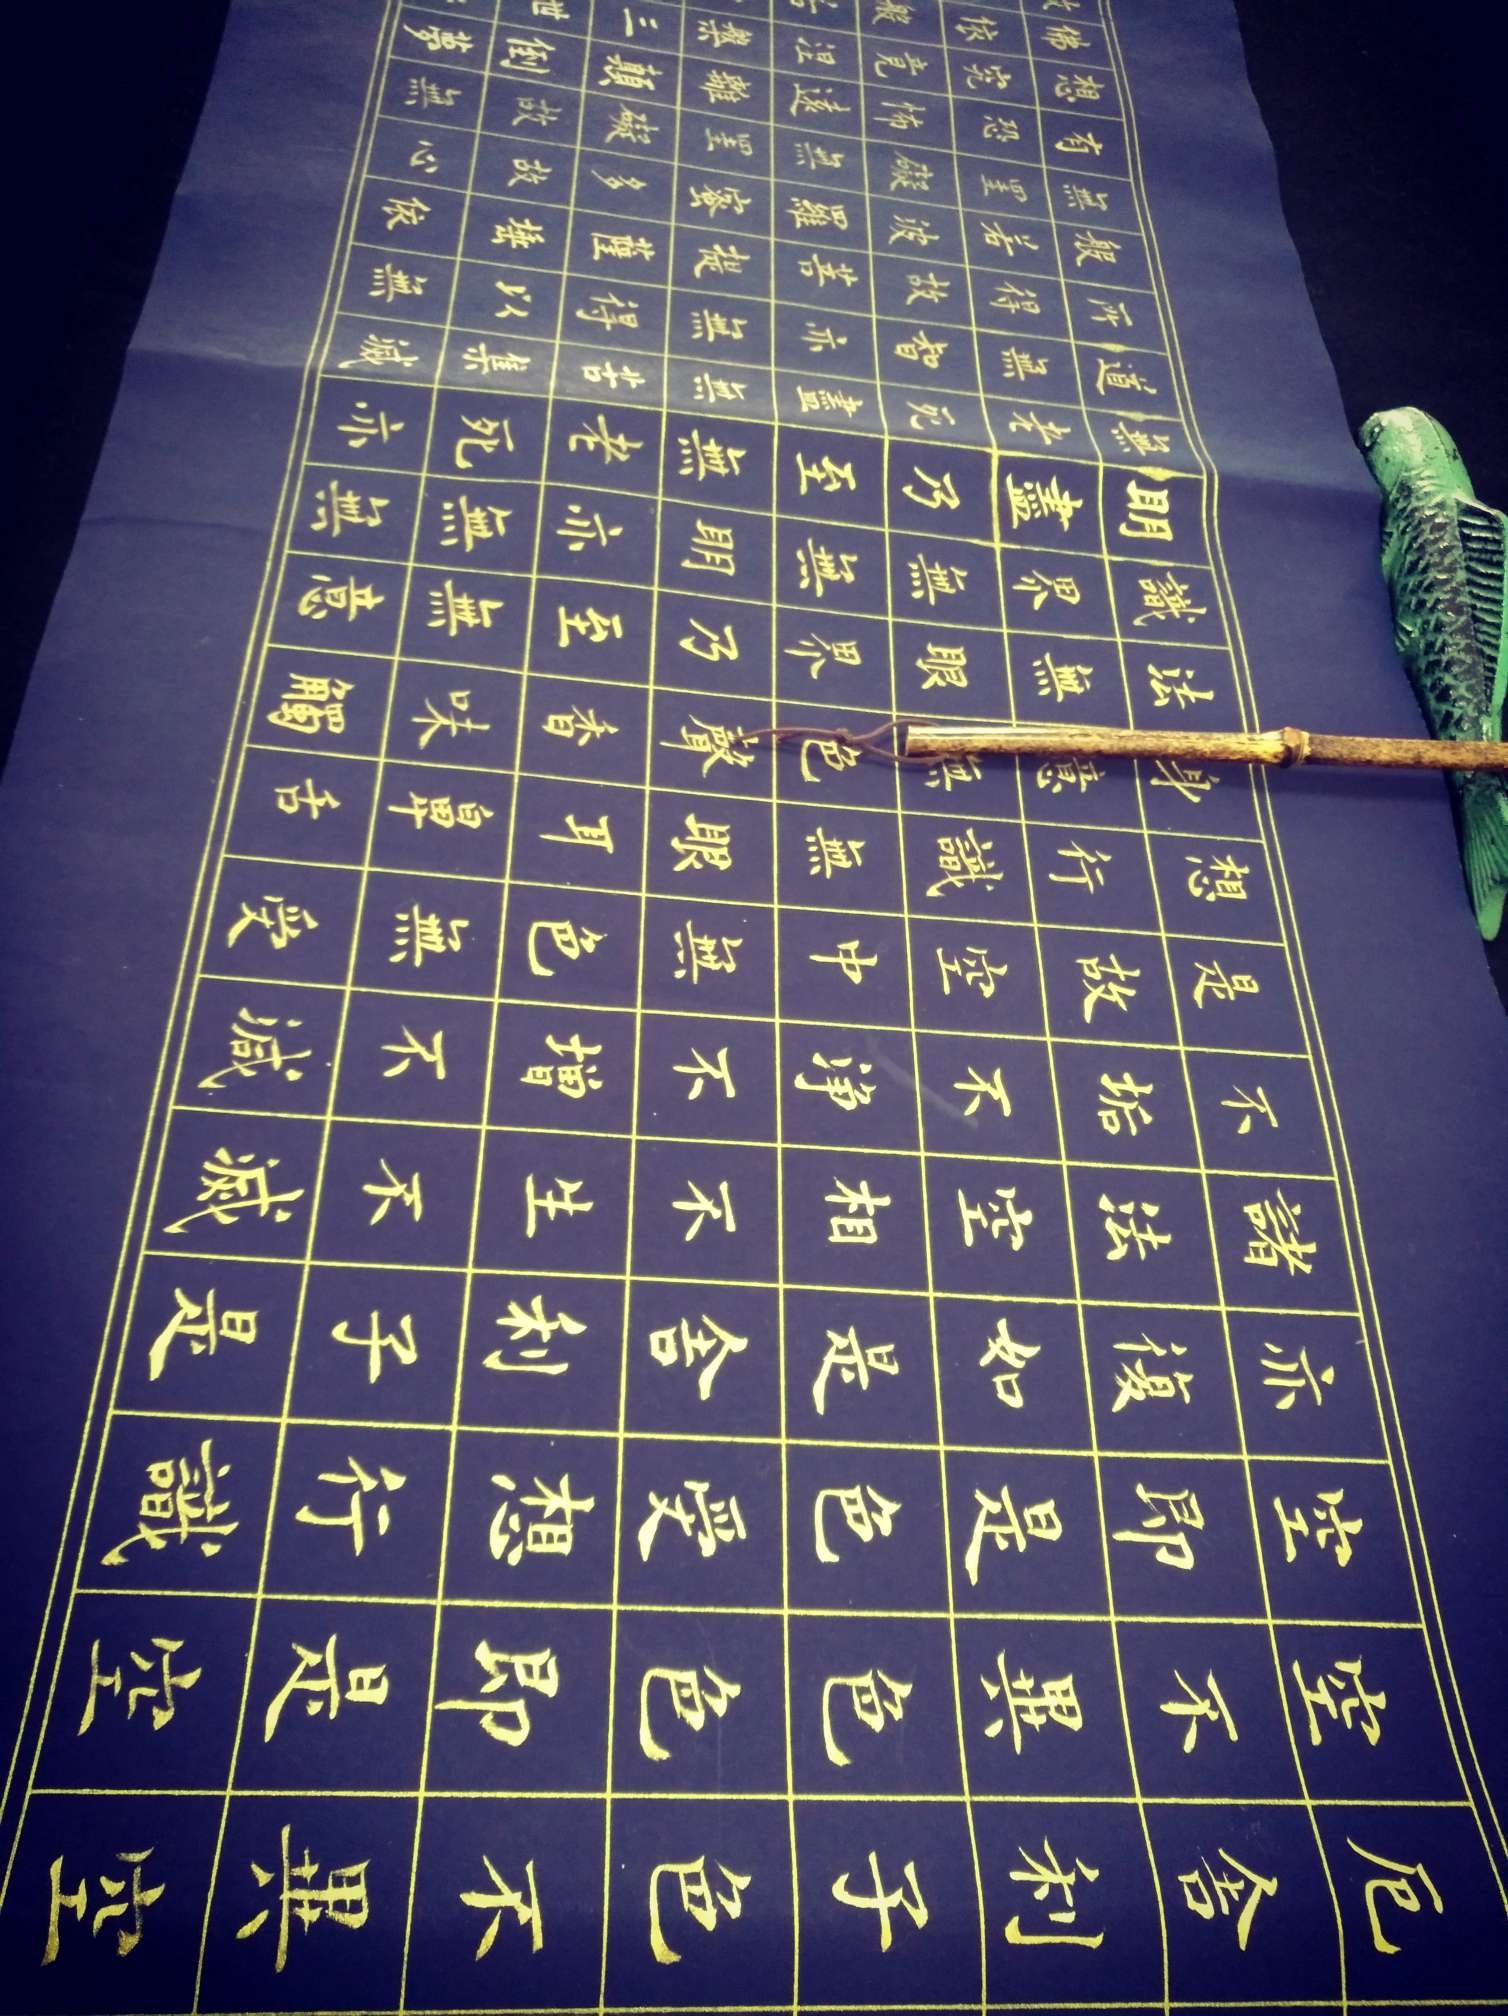 厄舍利子色不異空
空不異色色即是空
空即是色受想行識
亦復如是舍利子是
諸法空相不生不滅
不垢不淨不增不減
是故空中無色無受
想行識無眼耳鼻舌
身意無色聲香味觸
法無眼界乃至無意
識界無無明亦無無
明盡乃至無老死亦
無老死盡無苦集滅
道無智亦無得以無
所得故菩提薩埵依
般若波羅蜜多故心
無罣礙無罣礙故無
有恐怖遠離顛倒夢
想究竟涅槃三世
佛依般